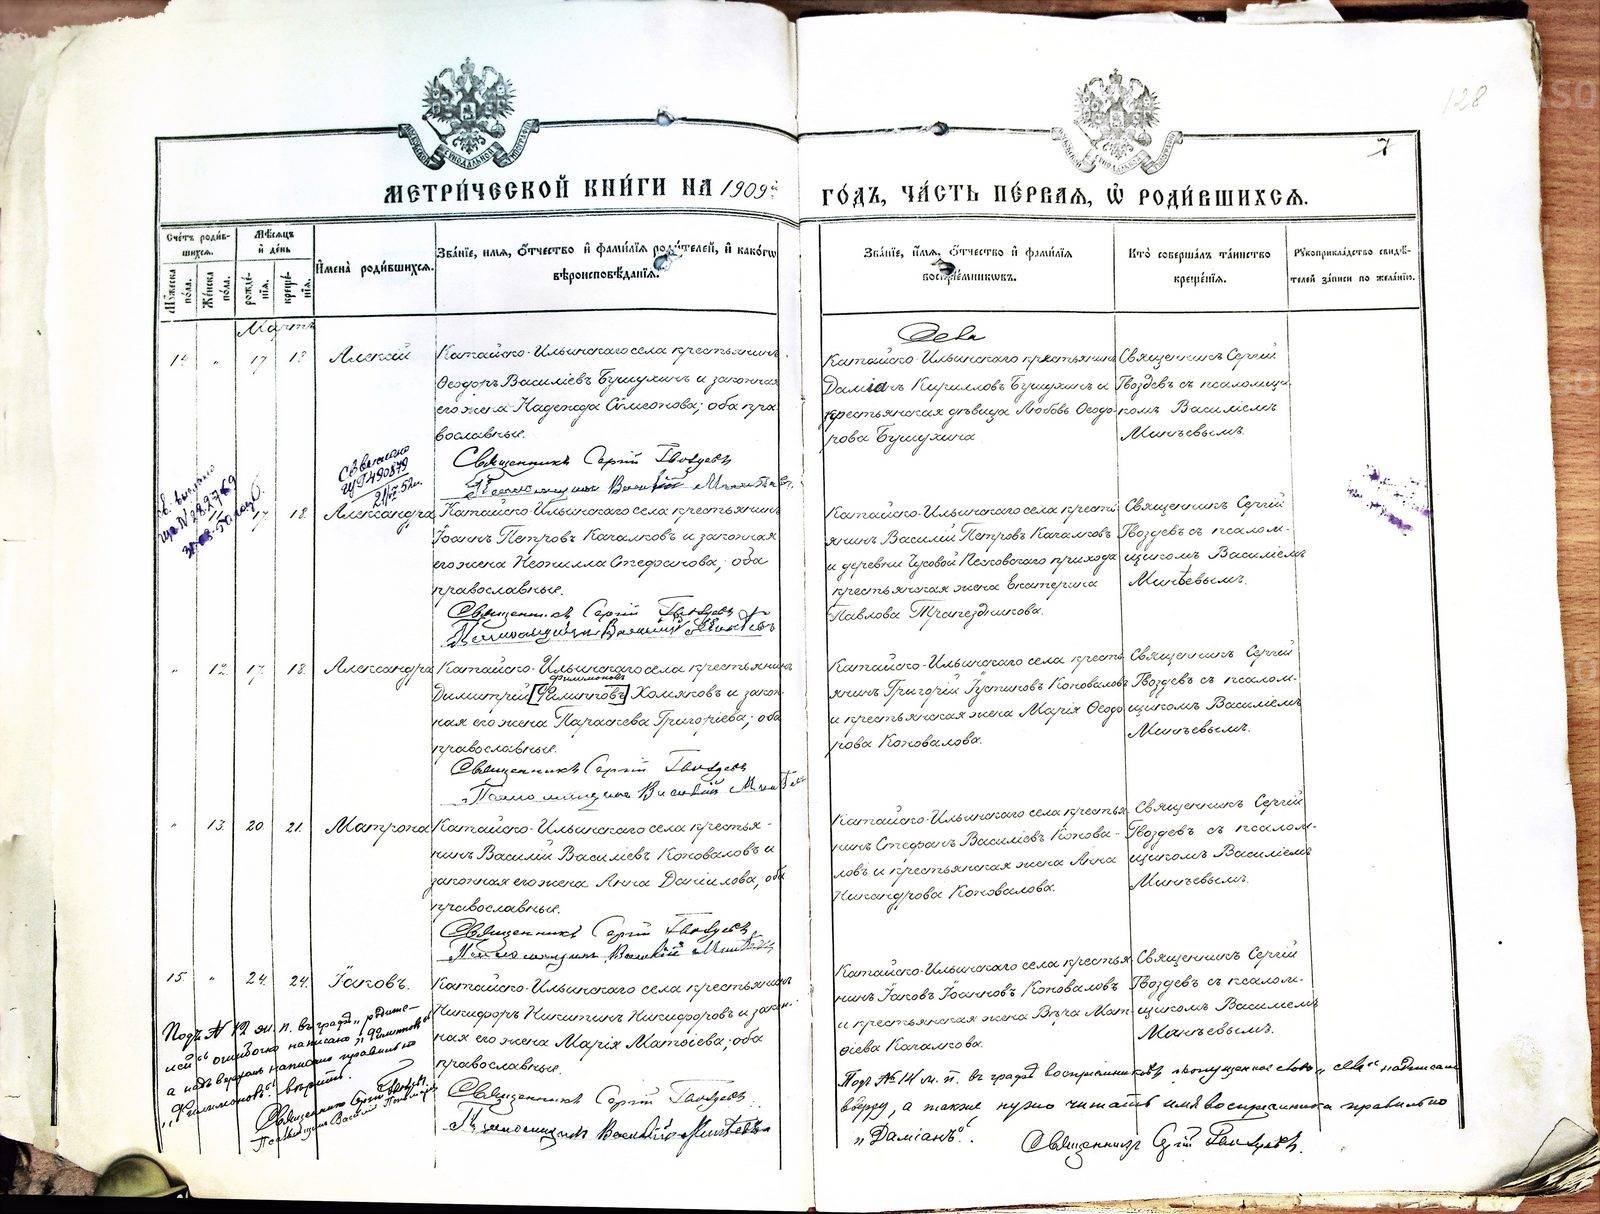 128
7
МЕТРИ́ЧЕСКОЙ КНИ́ГИ НА 1909й ГО́ДЪ, ЧА́СТЬ ПЕ́РВАЯ, Ѡ РОДИ́ВШИХСѦ.
Сче́тъ роди́в-
шихся.
Му́жеска по́ла.
Же́нска по́ла.
Мѣ́сяцъ и де́нь
рожде́-
нїя.
креще́-
нїя.
Имена̀ роди́вшихся.
Зва́нїе, имя, ѻ́тчество и фами́лїя роди́телей, и како́гѡ
вѣроисповѣ́данїя.
Зва́нїе, и́мя, ѻ́тчество и фами́лїя
воспрїе́мникѡвъ.
Кто̀ соверша́лъ та́инство
креще́нїя.
Рукоприкла́дство свидѣ́-
телей за́писи по жела́нїю.
Мартъ
14. „ 17 18 Алексій
Катайско-Ильинскаго села крестьянинъ
Ѳеодоръ Василіевъ Бушухинъ и законная
его жена Надежда Сѵмеонова; оба пра-
вославные.
Священникъ Сергій Гвоздевъ
Псаломщикъ Василій Минѣевъ
села
Катайско-Ильинскаго крестьянинъ
Даміанъ Кирилловъ Бушухинъ и
крестьянская дѣвица Любовь Ѳеодо-
рова Бушухина
Священникъ Сергій
Гвоздевъ съ псаломщи-
комъ Василіемъ
Минѣевымъ.
Св. выслано
Св выслано
11. 17. 18. Александра
Катайско-Ильинскаго села крестьянинъ
Іоаннъ Петровъ Качалковъ и законная
его жена Неонилла Стефанова; оба
православные.
Священникъ Сергій Гвоздевъ
Псаломщикъ Василій Минѣевъ
Катайско-Ильинскаго села кресть-
янинъ Василій Петровъ Качалковъ
и деревни Чусовой Песковскаго прихода
крестьянская жена Екатерина
Павлова Трапездникова.
Священникъ Сергій
Гвоздевъ съ псалом-
щикомъ Василіемъ
Минѣевымъ.
„ 12. 17. 18. Александра
Катайско-Ильинскаго села крестьянинъ
Филимоновъ
Димитрій [Филипповъ] Хомяковъ и закон-
ная его жена Параскева Григоріева; оба
православные.
Священникъ Сергій Гвоздевъ
Псаломщикъ Василій Минѣевъ
Катайско-Ильинскаго села кресть-
янинъ Григорій Іустиновъ Коноваловъ
и крестьянская жена Марія Ѳеодо-
рова Коновалова.
Священникъ Сергій
Гвоздевъ съ псалом-
щикомъ Василіемъ
Минѣевымъ.
„ 13. 20 21. Матрона
Катайско-Ильинскаго села крестья-
нинъ Василій Василіевъ Коноваловъ и
законная его жена Анна Даніилова; оба
православные.
Священникъ Сергій Гвоздевъ
Псаломщикъ Василій Минѣевъ
Катайско-Ильинскаго села крестья-
нинъ Стефанъ Василіевъ Конова-
ловъ и крестьянская жена Анна
Никандрова Коновалова.
Священникъ Сергій
Гвоздевъ съ псалом-
щикомъ Василіемъ
Минѣевымъ.
15. „ 24. 24. Іаковъ.
Катайско-Ильинскаго села крестьянинъ
Никифоръ Никитинъ Никифоровъ и закон-
ная его жена Марія Матѳіева; оба
православные.
Священникъ Сергій Гвоздевъ
Псаломщикъ Василій Минѣевъ
Катайско-Ильинскаго села крестья-
нинъ Іаковъ Іоанновъ Коноваловъ
и крестьянская жена Вѣра Мат-
ѳіева Качалкова.
Священникъ Сергій
Гвоздевъ съ псалом-
щикомъ Василіемъ
Минѣевымъ.
Подъ № 12 ж. п. въ графѣ „родите-
лей“ ошибочно написано „Филипповъ“
а надъ верхомъ написано правильно
„Филимоновъ“ вѣрить.
Священникъ Сергій Гвоздевъ.
Псаломщикъ Василій
Подъ № 14 м. п. въ графѣ воспріемниковъ пропущенное слово „села“ надписано
вверху, а также нужно читать имя воспріемника правильно
„Даміанъ“.
Священникъ Сергій Гвоздевъ.